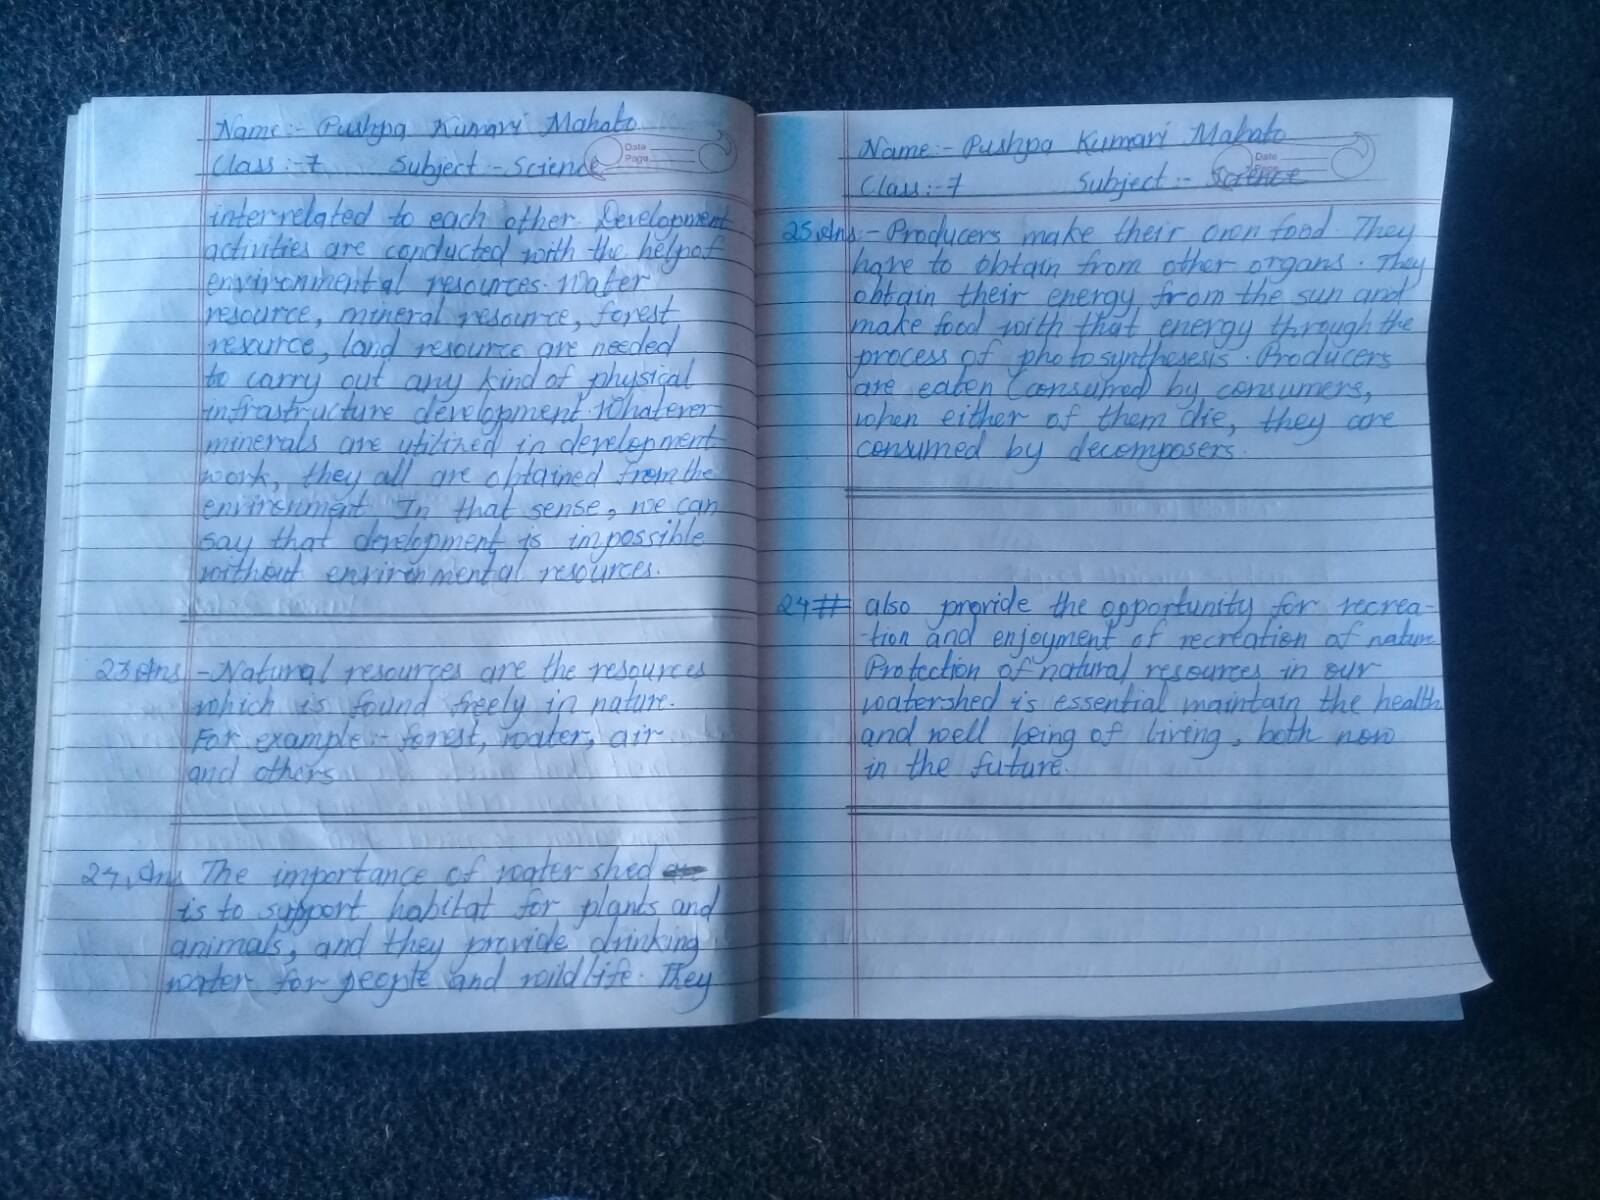 Name:- Pushpa Kumari Mahato
Date
Page
Class:-7 Subject:- Science
interrelated to each other. Development
activities are conducted with the help of
environmental resources. Water
resource, mineral resource, forest
resource, land resource are needed
to carry out any kind of physical
infrastructure development. Whatever
minerals are utilized in development
work, they all are obtained from the
environment. In that sense, we can
say that development is impossible
without environmental resources.
23 Ans - Natural resources are the resources
which is found freely in nature.
For example:- forest, water, air
and others
24. Ans The importance of water shed
is to support habitat for plants and
animals, and they provide drinking
water for people and wild life. They
Name:- Pushpa Kumari Mahato
Date
Page
Class:-7 Subject:- Science
25. Ans:- Producers make their own food. They
have to obtain from other organs. They
obtain their energy from the sun and
make food with that energy through the
process of photosynthesesis. Producers
are eaten (consumed) by consumers,
when either of them die, they are
consumed by decomposers.
24 # also provide the opportunity for recrea-
-tion and enjoyment of recreation of nature.
Protection of natural resources in our
watershed is essential maintain the health
and well being of living, both now
in the future.